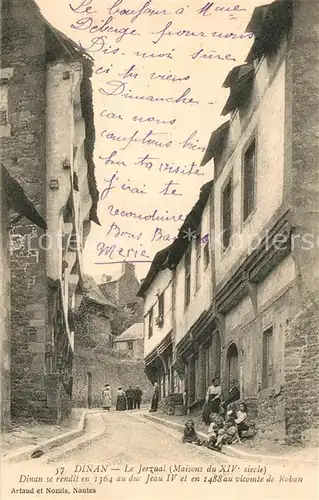 Le bonjour à Mme
Deberge pour nous
Dis-moi sœur
si tu viens
Dimanche
car nous
comptons bien
sur ta visite
j'irai te
reconduire
Bons Baisers
Marie
37 DINAN — Le Jerzual (Maisons du XIVe siècle)
Dinan se rendit en 1364 au duc Jean IV et en 1488 au vicomte de Rohan
Artaud et Nozais, Nantes